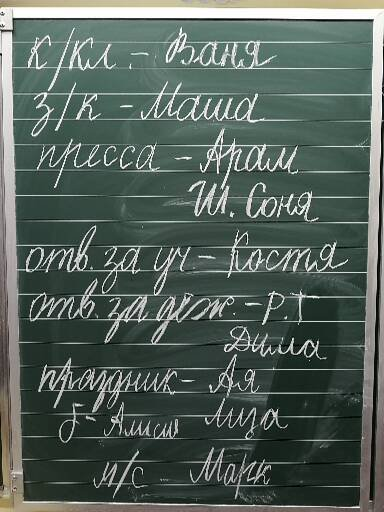 к/кл. - Ваня
з/к - Маша
пресса - Арам
Ш. Соня
отв. за уч - Костя
отв. за деж. - Р.Т
Дима
праздник - Ая
Лиза
м/с Марк